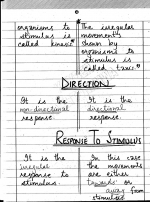 organisms to
stimulus is
called kinesis
The irregular
movement
shown by
organisms to
stimulus is
called taxis
DIRECTION
It is the
non directional
response.
It is the
directional
response.
RESPONSE TO STIMULUS
It is the
irregular
response to
stimulus.
In this case
the movements
are either
towards or
away from
stimulus